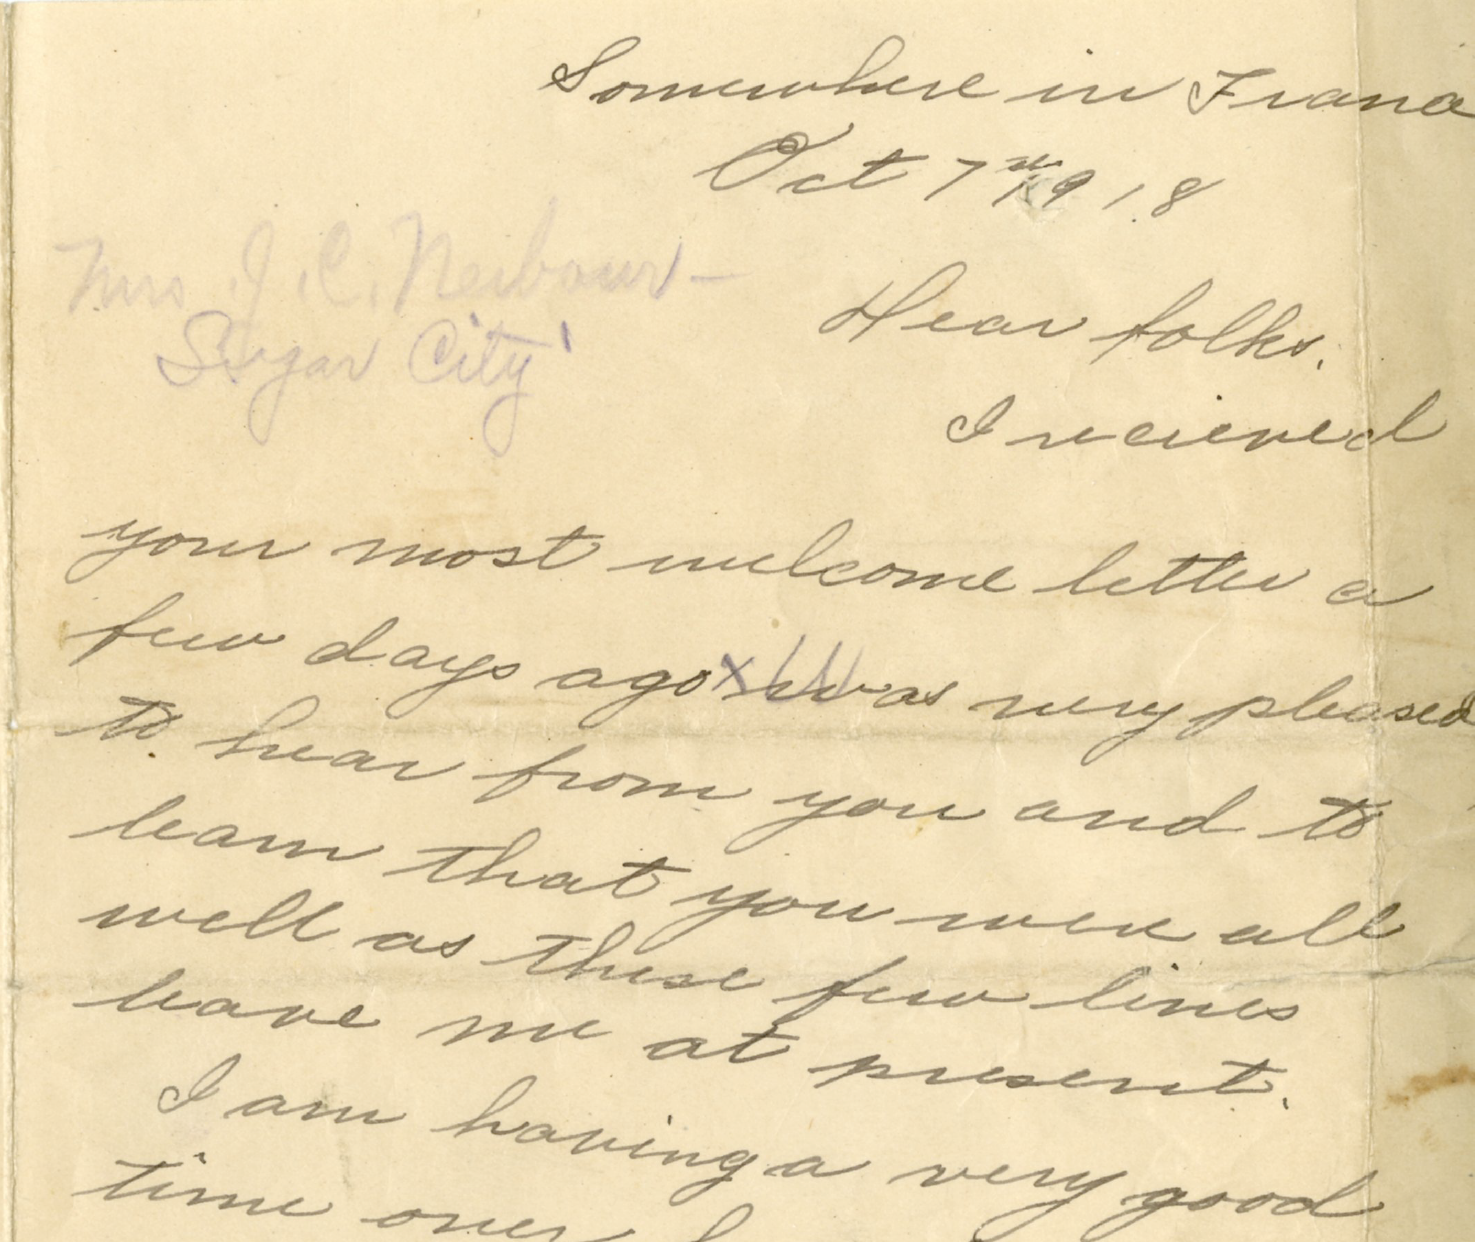 Somewhere in France
Oct 7th 1918
Mrs. J. C. Neubauer -
Sugar City
Dear folks.
I recieved
your most welcome letter a
few days ago was very pleased
to hear from you and to
learn that you were all
well as these few lines
leave me at present.
I am having a very good
time over